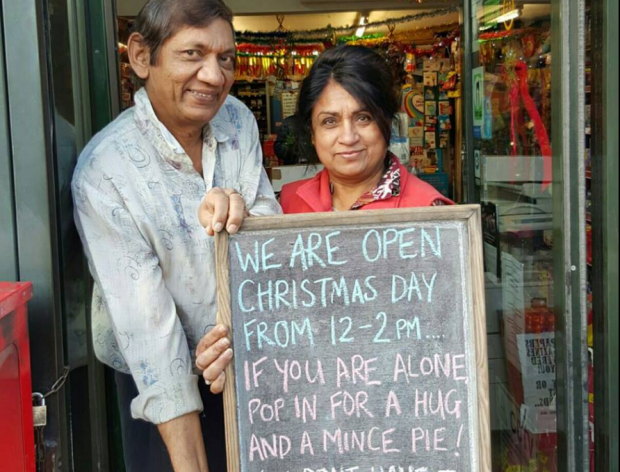 WE ARE OPEN
CHRISTMAS DAY
FROM 12-2PM....
IF YOU ARE ALONE,
POP IN FOR A HUG
AND A MINCE PIE!